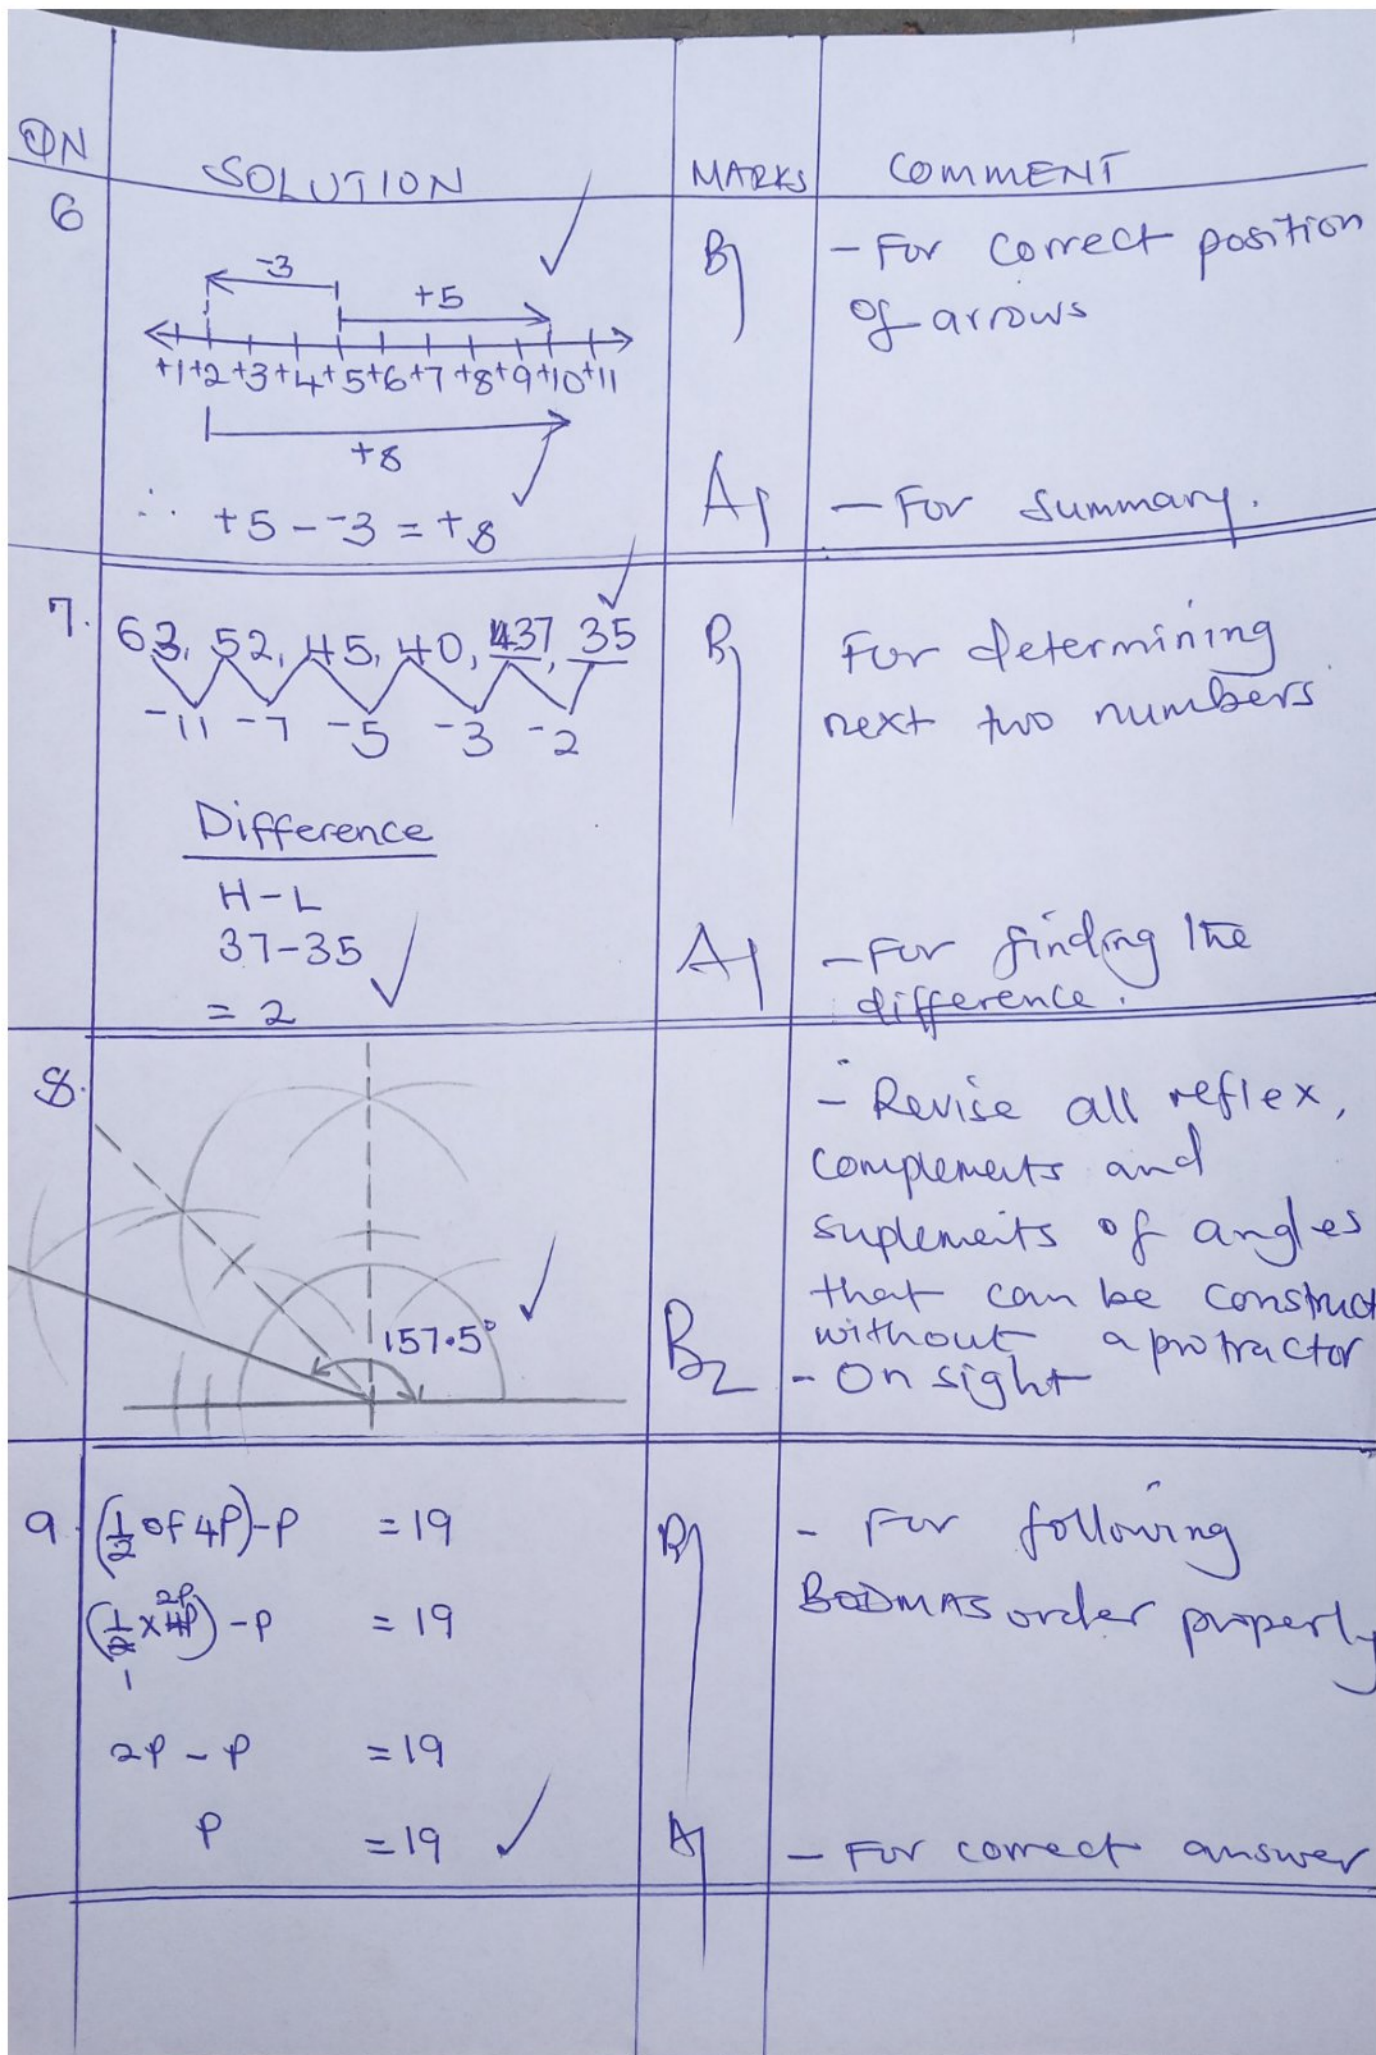 QN SOLUTION MARKS COMMENT
6
-3
+5
+1 +2 +3 +4 +5 +6 +7 +8 +9 +10 +11
+8
∴ +5 - -3 = +8
B1 - For correct position
of arrows
A1 - For summary.
7. 63, 52, 45, 40, 37, 35
-11 -7 -5 -3 -2
Difference
H-L
37-35
= 2
B1 For determining
next two numbers
A1 - For finding the
difference.
8.
157.5°
- Revise all reflex,
complements and
suplements of angles
that can be construct
without a protractor
B2 - On sight
9. (1/2 of 4P)-P = 19
(1/2 x 4P) - P = 19
2P
1
2P - P = 19
P = 19
B1 - For following
BODMAS order properly
A1 - For correct answer